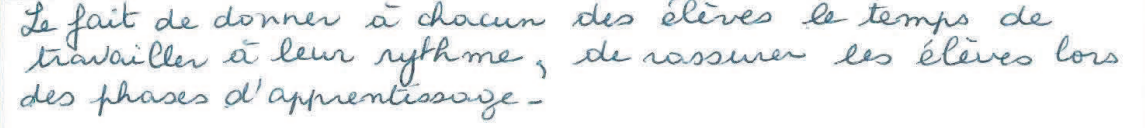 Le fait de donner à chacun des élèves le temps de
travailler à leur rythme, de rassurer les élèves lors
des phases d'apprentissage.